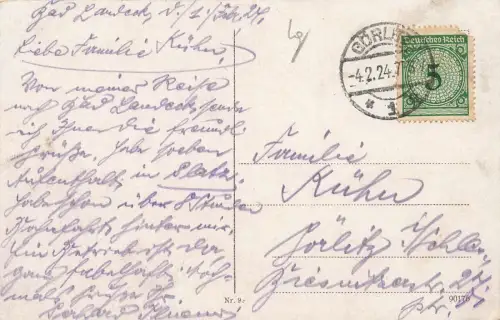 Bad Landeck, d. 1. Feb. 24.
Liebe Familie Kühn,
Von meiner Reise
nach Bad Landeck sende
ich Ihnen die freundl.
Grüße. Habe soeben
Aufenthalt in Glatz.
Habe schon über 8 Stunden
Bahnfahrt hinter mir.
Ein Betrieb ist da
ganz fabelhaft. Noch-
mals
GÖRLI
-4.2.24.7
* 1
Deutsches Reich
5
Familie
Kühn
Görlitz
Nr. 9
90176